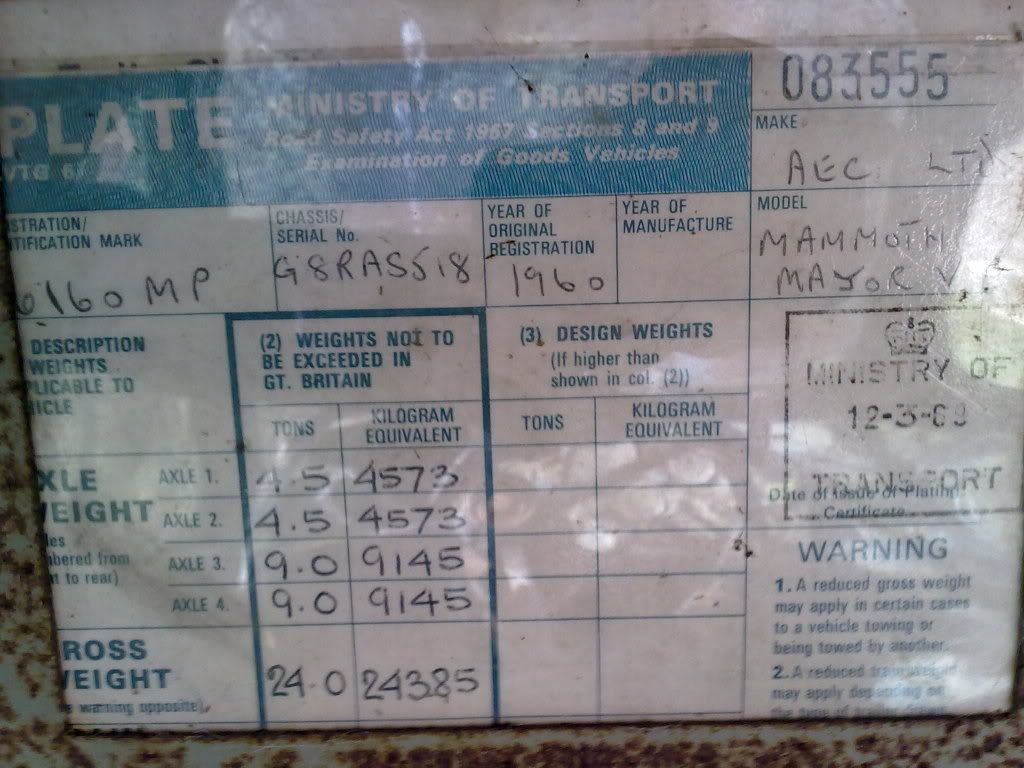 PLATE
MINISTRY OF TRANSPORT
Road Safety Act 1967 Sections 8 and 9
Examination of Goods Vehicles
VTG 6
083555
MAKE
AEC LTD
STRATION/
TIFICATION MARK
6160 MP
CHASSIS/
SERIAL No.
G8RA5518
YEAR OF
ORIGINAL
REGISTRATION
1960
YEAR OF
MANUFACTURE
MODEL
MAMMOTH
MAYOR V.
DESCRIPTION
WEIGHTS
PLICABLE TO
HICLE
(2) WEIGHTS NOT TO
BE EXCEEDED IN
GT. BRITAIN
(3) DESIGN WEIGHTS
(If higher than
shown in col. (2))
TONS
KILOGRAM
EQUIVALENT
TONS
KILOGRAM
EQUIVALENT
MINISTRY OF
12-3-69
TRANSPORT
Date of Issue of Plating
Certificate
XLE
WEIGHT
les
bered from
t to rear)
AXLE 1. 4.5 4573
AXLE 2. 4.5 4573
AXLE 3. 9.0 9145
AXLE 4. 9.0 9145
ROSS
WEIGHT
e warning opposite)
24.0 24385
WARNING
1. A reduced gross weight
may apply in certain cases
to a vehicle towing or
being towed by another.
2. A reduced train weight
may apply depending on
the type of trailer drawn